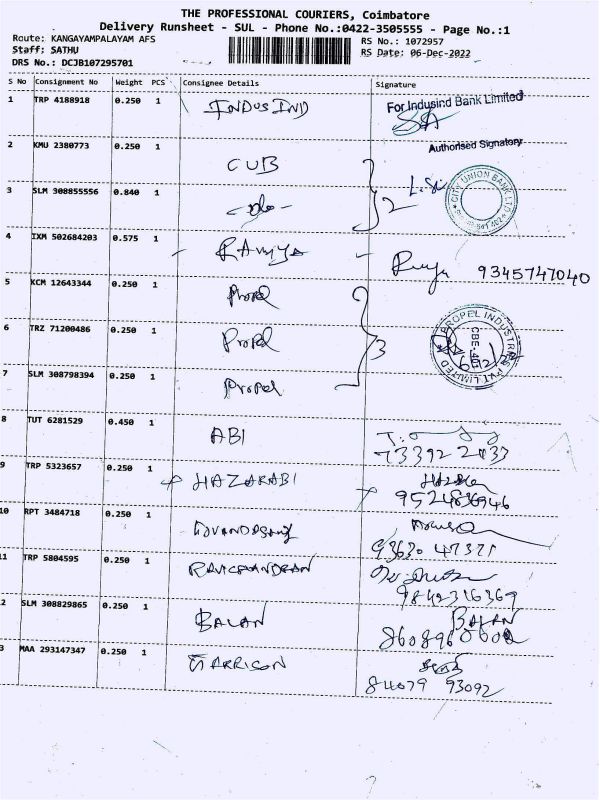 THE PROFESSIONAL COURIERS, Coimbatore
Delivery Runsheet - SUL - Phone No.:0422-3505555 - Page No.:1
Route: KANGAYAMPALAYAM AFS
RS No.: 1072957
Staff: SATHU
RS Date: 06-Dec-2022
DRS No.: DCJB107295701
S No Consignment No Weight PCS Consignee Details Signature
1 TRP 4188918 0.250 1 INDUSIND For Indusind Bank Limited
Authorised Signatory
2 KMU 2380773 0.250 1 CUB
3 SLM 308855556 0.840 1 -do- 2 CITY UNION BANK LTD.
4 IXM 502684203 0.575 1 - Ramya - 9345747040
5 KCM 12643344 0.250 1 Propel
6 TRZ 71200486 0.250 1 Propel 3 PROPEL INDUSTRIES PVT LIMITED
7 SLM 308798394 0.250 1 Propel
8 TUT 6281529 0.450 1 ABI
9 TRP 5323657 0.250 1 HAZARABI
10 RPT 3484718 0.250 1 93630 47371
11 TRP 5804595 0.250 1 RAVICHANDRAN 9842316369
2 SLM 308829865 0.250 1 BALAN BALAN
3 MAA 293147347 0.250 1 HARRISON
84079 93092